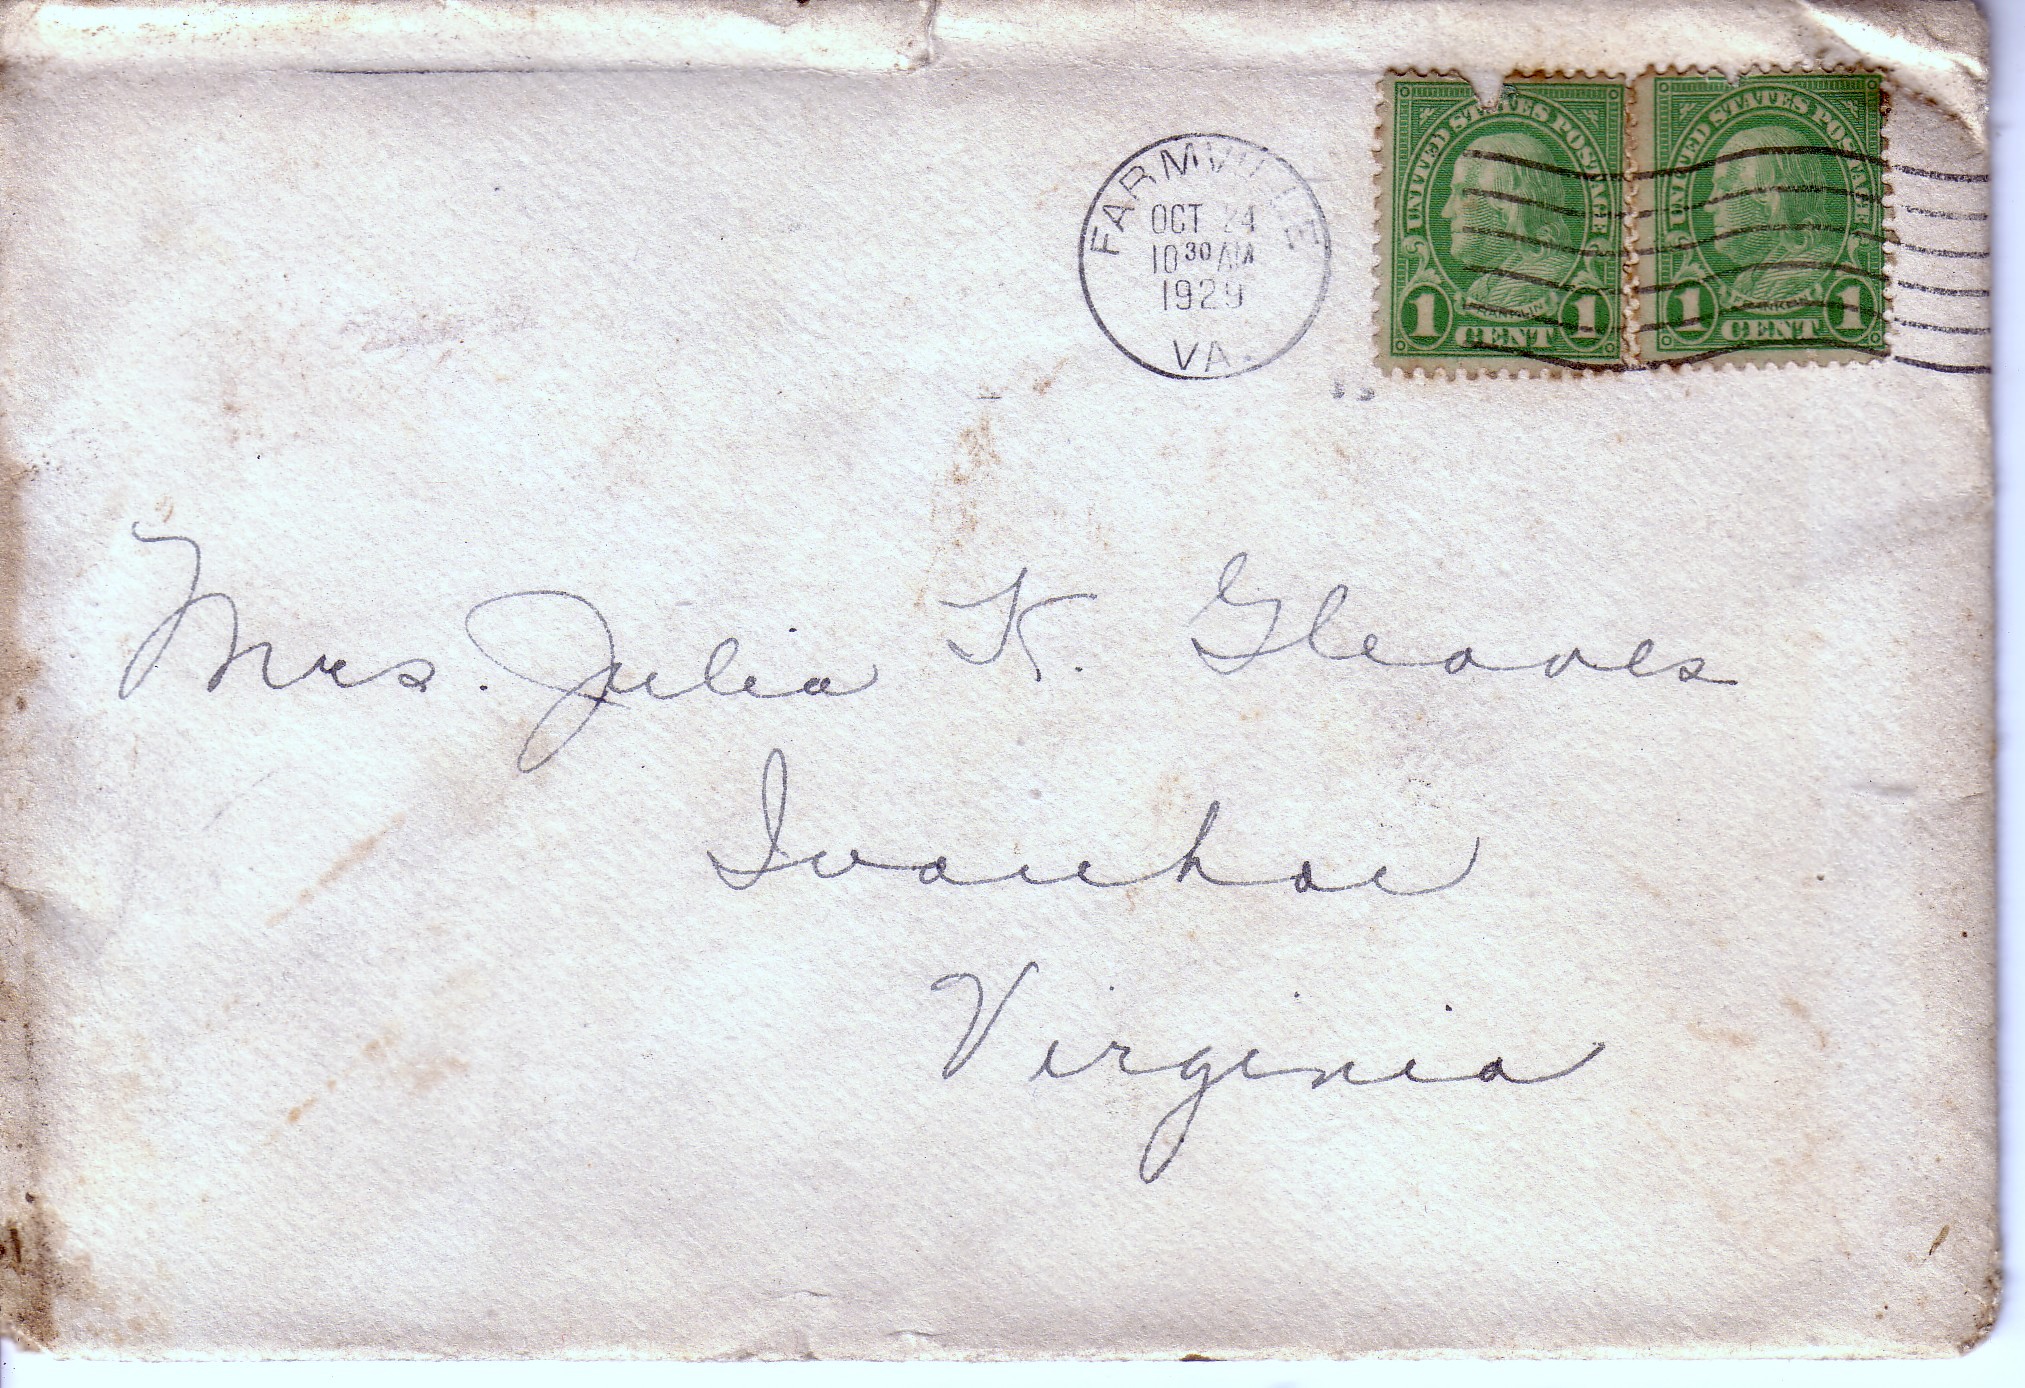 FARMVILLE
OCT 24
10 30 AM
1929
VA.
UNITED STATES POSTAGE
FRANKLIN
1 CENT 1
UNITED STATES POSTAGE
FRANKLIN
1 CENT 1
Mrs. Julia K. Gleaves
Ivanhoe
Virginia